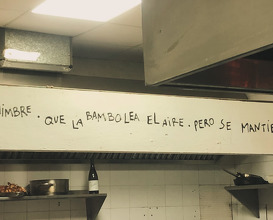 IMBRE. QUE LA BAMBOLEA EL AIRE. PERO SE MANTIE